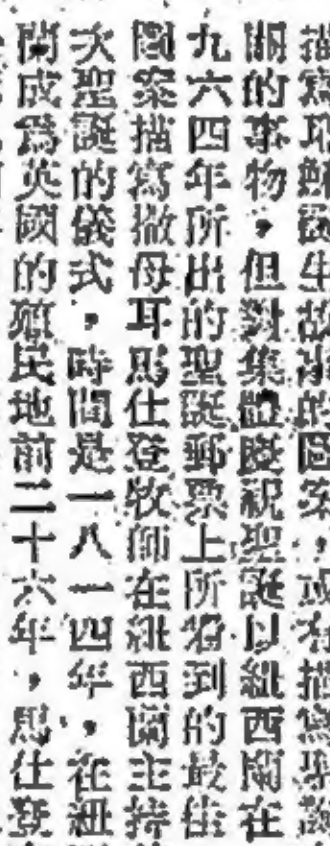 描寫耶穌誕生故事的圖案，或者描寫聖誕
湖的事物，但對集體慶祝聖誕以紐西蘭在
九六四年所出的聖誕郵票上所看到的最佳
圖案描寫撒母耳馬仕登牧師在紐西蘭主持
次聖誕的儀式，時間是一八一四年，在紐
蘭成爲英國的殖民地前二十六年，馬仕登